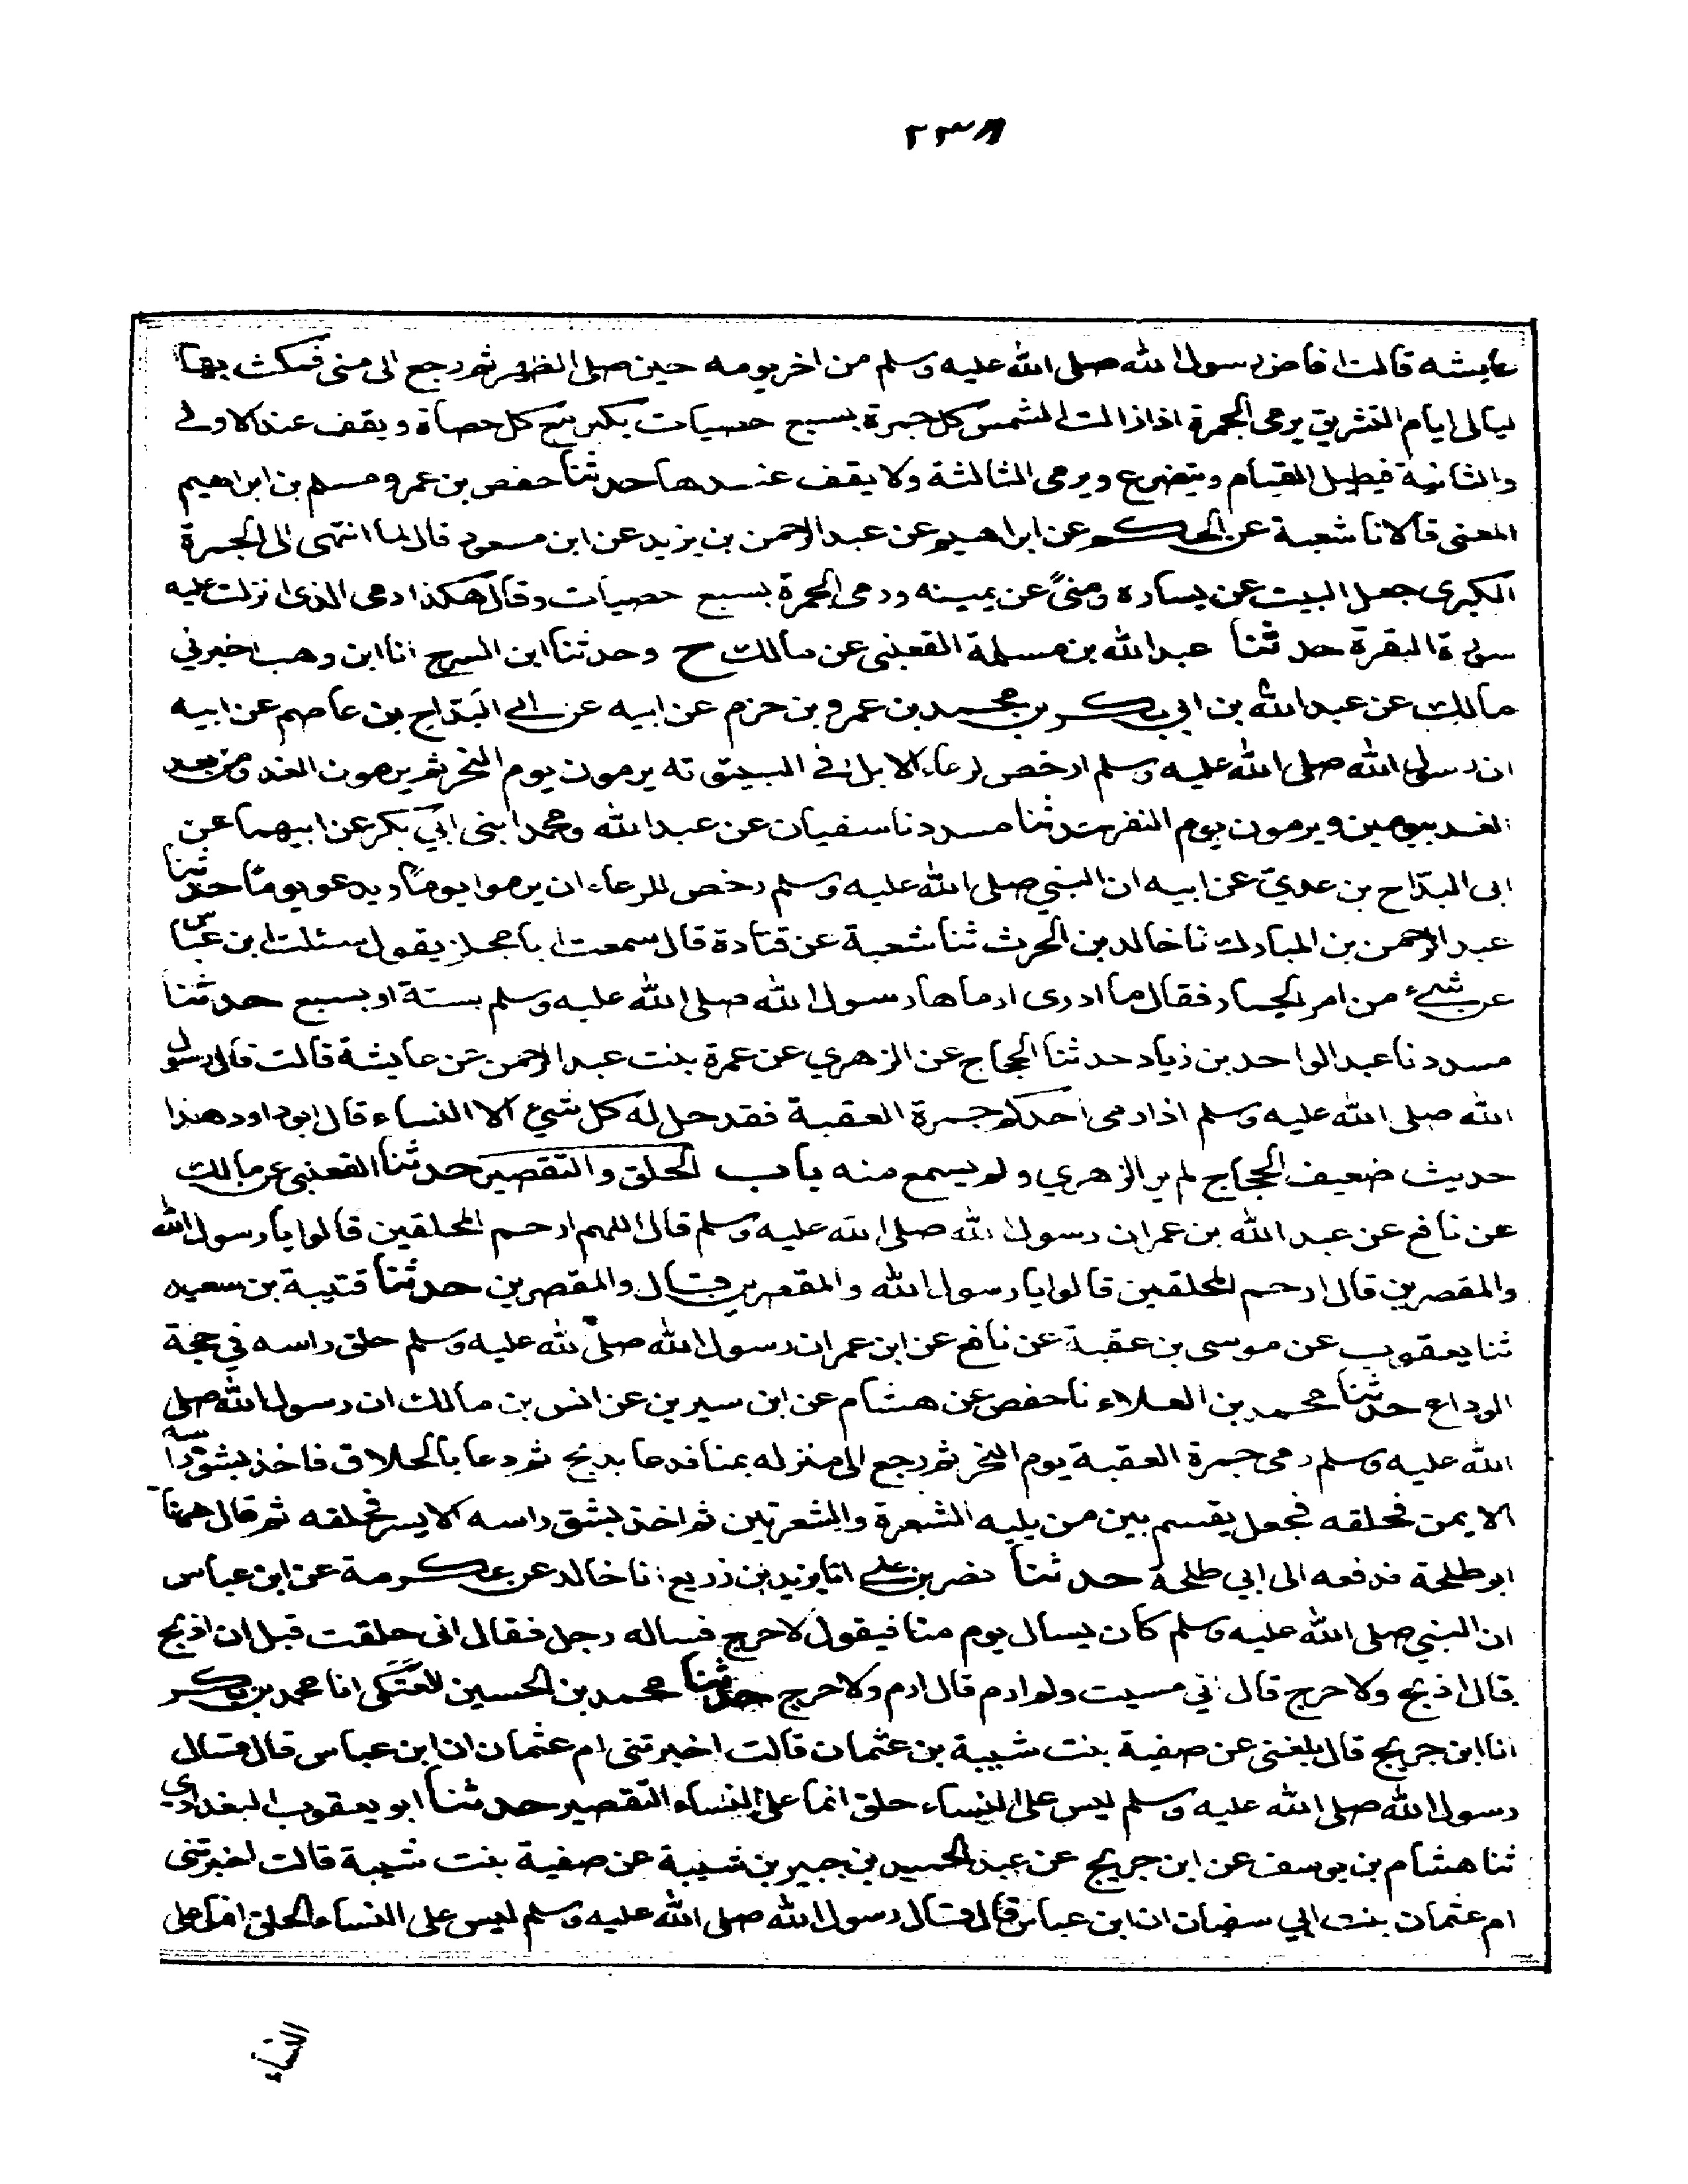 ٢٣٨
عايشه قالت افاض رسول الله صلى الله عليه وسلم من اخر يومه حين صلى الظهر ثم رجع الى منى فمكث بها
ليالى ايام التشريق يرمى الجمرة اذا زالت الشمس كل جمرة بسبع حصيات يكبر مع كل حصاة ويقف عند الاولى
والثانية فيطيل القيام ويتضرع ويرمى الثالثة ولا يقف عندها حدثنا حفص بن عمر ومسلم بن ابراهيم
المعنى قالا نا شعبة عن الحكم عن ابراهيم عن عبد الرحمن بن يزيد عن ابن مسعود قال لما انتهى الى الجمرة
الكبرى جعل البيت عن يساره ومنىً عن يمينه ورمى الجمرة بسبع حصيات وقال هكذا رمى الذى انزلت عليه
سورة البقرة حدثنا عبد الله بن مسلمة القعنبى عن مالك ح وحدثنا ابن السرج انا ابن وهب اخبرني
مالك عن عبد الله بن ابي بكر بن محمد بن عمرو بن حزم عن ابيه عن ابي البَدّاح بن عاصم عن ابيه
ان رسول الله صلى الله عليه وسلم ارخص لرعاء الابل في البيتوته يرمون يوم النحر ثم يرمون الغد ومن بعد
الغد بيومين ويرمون يوم النفر حدثنا مسدد نا سفيان عن عبد الله ومحمد ابنى ابي بكر عن ابيهما عن
ابى البدّاح بن عدي عن ابيه ان النبي صلى الله عليه وسلم رخص للرعاء ان يرموا يوماً ويدعو يوماً حدثنا
عبد الرحمن بن المبارك نا خالد بن الحرث ثنا شعبة عن قتادة قال سمعت ابا مجلز يقول سئلت ابن عباس
عن شيء من امر الجمار فقال ما ادرى ارماها رسول الله صلى الله عليه وسلم بستة او بسبع حدثنا
مسدد نا عبد الواحد بن زياد حدثنا الحجاج عن الزهري عن عمرة بنت عبد الرحمن عن عايشة قالت قال رسول
الله صلى الله عليه وسلم اذا رمى احدكم جمرة العقبة فقد حل له كل شيئ الا النساء قال ابو داود هذا
حديث ضعيف الحجاج لم ير الزهري ولم يسمع منه باب الحلق والتقصير حدثنا القعنبى عن مالك
عن نافع عن عبد الله بن عمر ان رسول الله صلى الله عليه وسلم قال اللهم ارحم المحلقين قالوا يا رسول الله
والمقصرين قال ارحم المحلقين قالوا يا رسول الله والمقصرين قال والمقصرين حدثنا قتيبة بن سعيد
ثنا يعقوب عن موسى بن عقبة عن نافع عن ابن عمر ان رسول الله صلى الله عليه وسلم حلق راسه في حجة
الوداع حدثنا محمد بن العلاء نا حفص عن هشام عن ابن سيرين عن انس بن مالك ان رسول الله صلى
الله عليه وسلم رمى جمرة العقبة يوم النحر ثم رجع الى منزله بمنا فدعا بذبح ثم دعا بالحلاق فاخذ بشق راسه
الايمن فحلقه فجعل يقسم بين من يليه الشعرة والشعرتين ثم اخذ بشق راسه الايسر فحلقه ثم قال ههنا
ابو طلحة فدفعه الى ابي طلحة حدثنا نصر بن علي انا يزيد بن زريع انا خالد عن عكرمة عن ابن عباس
ان النبي صلى الله عليه وسلم كان يسال يوم منا فيقول لا حرج فساله رجل فقال انى حلقت قبل ان اذبح
قال اذبح ولا حرج قال اني مسيت ولم ارم قال ارم ولا حرج حدثنا محمد بن الحسين العَتَكى انا محمد بن بكر
انا ابن جريج قال بلغنى عن صفية بنت شيبة بن عثمان قالت اخبرتنى ام عثمان ان ابن عباس قال قال
رسول الله صلى الله عليه وسلم ليس على النساء حلق انما على النساء التقصير حدثنا ابو يعقوب البغدادي
ثنا هشام بن يوسف عن ابن جريج عن عبد الحميد بن جبير بن شيبة عن صفية بنت شيبة قالت اخبرتنى
ام عثمان بنت ابي سفيان ان ابن عباس قال قال رسول الله صلى الله عليه وسلم ليس على النساء الحلق انما على